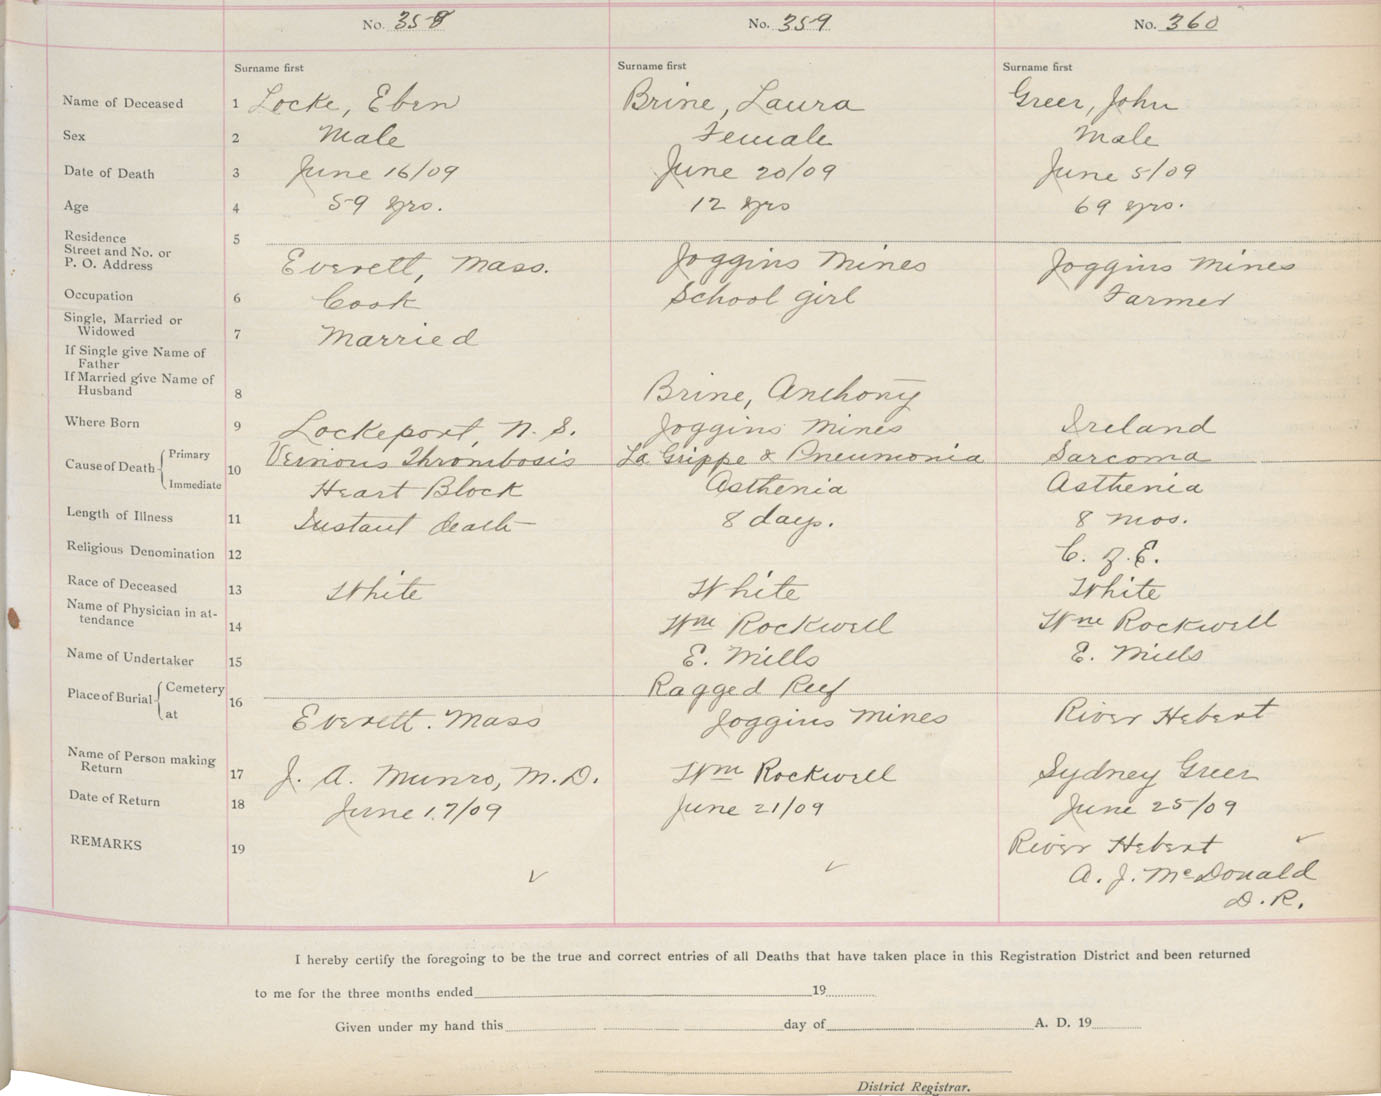 No. 358 No. 359 No. 360
Surname first Surname first Surname first
Name of Deceased 1 Locke, Eben Brine, Laura Greer, John
Sex 2 Male Female Male
Date of Death 3 June 16/09 June 20/09 June 5/09
Age 4 59 yrs. 12 yrs 69 yrs.
Residence 5
Street and No. or
P. O. Address Everett, Mass. Joggins Mines Joggins Mines
Occupation 6 Cook School girl Farmer
Single, Married or
Widowed 7 Married
If Single give Name of
Father
If Married give Name of
Husband 8 Brine, Anthony
Where Born 9 Lockeport, N. S. Joggins Mines Ireland
Cause of Death 10
Primary Vernous Thrombosis La Grippe & Pneumonia Sarcoma
Immediate Heart Block Asthenia Asthenia
Length of Illness 11 Instant death 8 days. 8 mos.
Religious Denomination 12 C. of E.
Race of Deceased 13 White White White
Name of Physician in at-
tendance 14 Wm Rockwell Wm Rockwell
Name of Undertaker 15 E. Mills E. Mills
Place of Burial 16
Cemetery Ragged Reef
at Everett. Mass Joggins Mines River Hebert
Name of Person making
Return 17 J. A. Munro, M. D. Wm Rockwell Sydney Greer
Date of Return 18 June 17/09 June 21/09 June 25/09
REMARKS 19 River Hebert
A. J. McDonald
D. R.
I hereby certify the foregoing to be the true and correct entries of all Deaths that have taken place in this Registration District and been returned
to me for the three months ended 19
Given under my hand this day of A. D. 19
District Registrar.